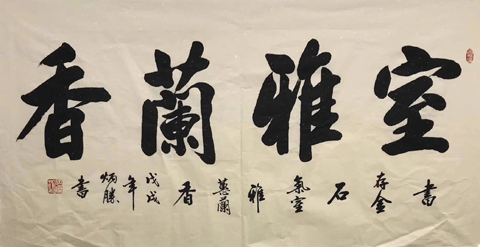 室雅蘭香
書存金石氣室雅蕙蘭香戊戌年炳勝書